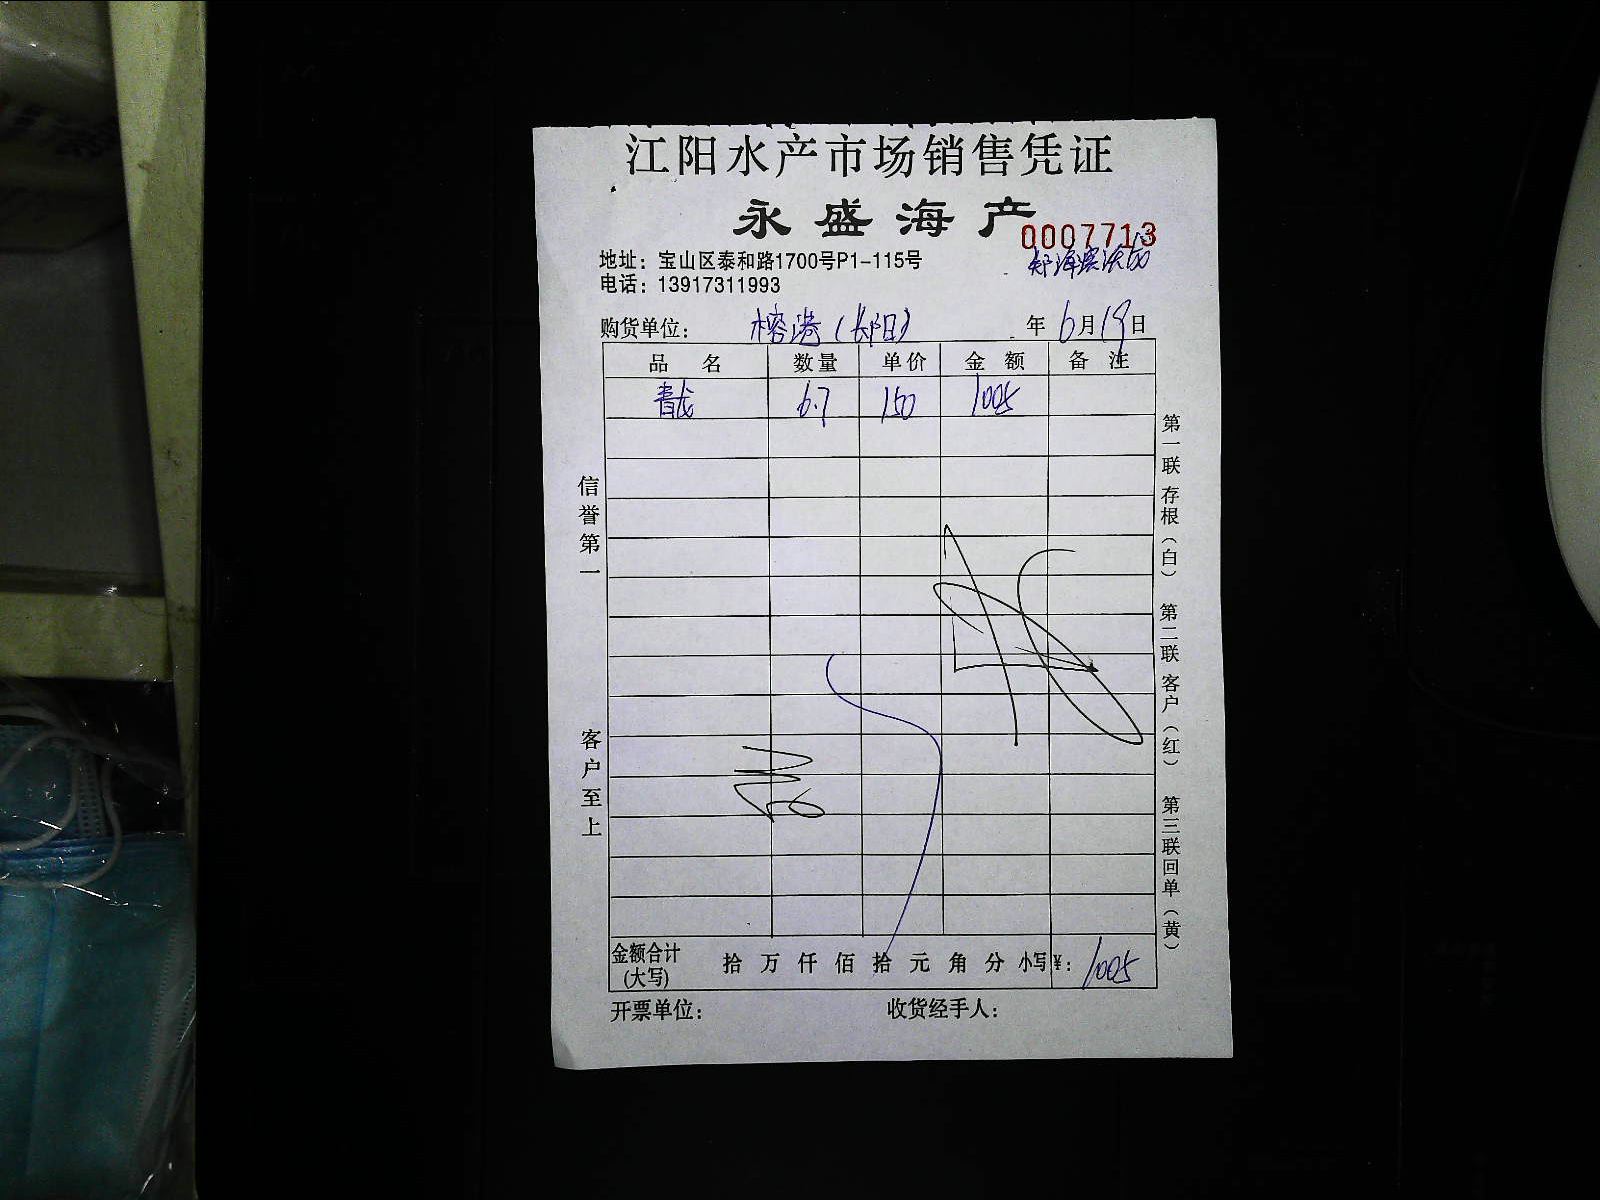 江阳水产市场销售凭证
永盛海产
0007713
地址：宝山区泰和路1700号P1-115号
电话：13917311993
购货单位：榕港（长阳） 年 6月19日
品名 数量 单价 金额 备注
青龙 6.7 150 1005
信誉第一
客户至上
第一联存根（白） 第二联客户（红） 第三联回单（黄）
金额合计（大写） 拾 万 仟 佰 拾 元 角 分 小写¥：1005
开票单位： 收货经手人：